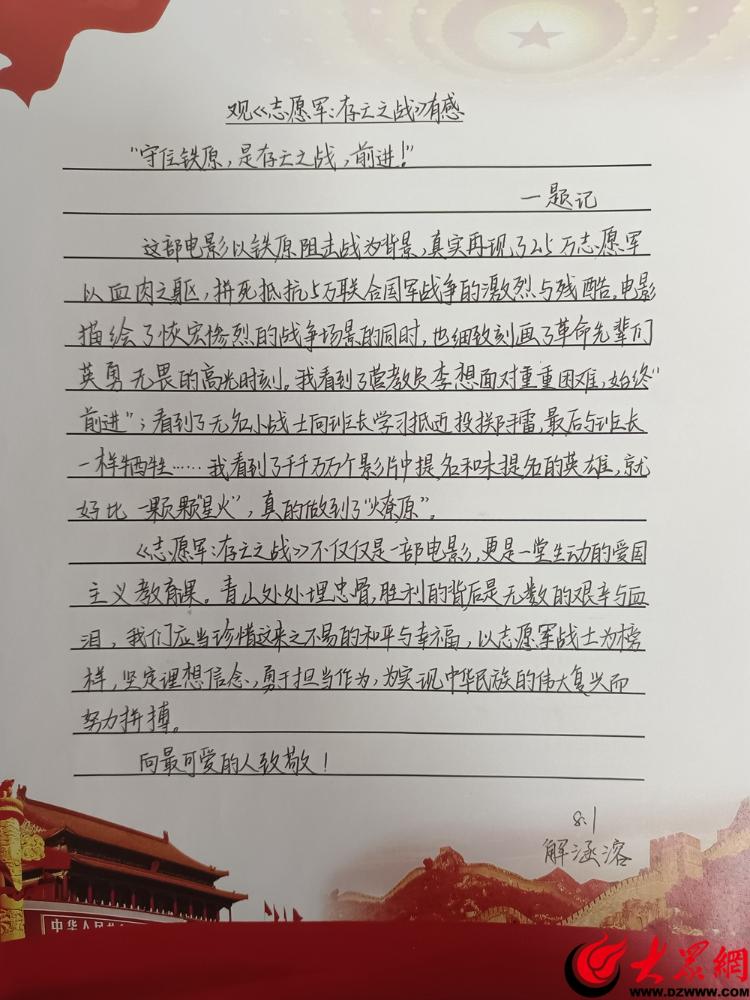 观《志愿军:存亡之战》有感
“守住铁原，是存亡之战，前进!”
一题记
这部电影以铁原阻击战为背景，真实再现了2.5万志愿军
以血肉之躯，拼死抵抗5万联合国军战争的激烈与残酷。电影
描绘了恢宏惨烈的战争场景的同时，也细致刻画了革命先辈们
英勇无畏的高光时刻。我看到了营教员李想面对重重困难，始终“
前进”；看到了无名小战士向班长学习抵近投掷手雷，最后与班长
一样牺牲……我看到了千千万万个影片中提名和未提名的英雄，就
好比一颗颗“星火”，真的做到了“燎原”。
《志愿军:存亡之战》不仅仅是一部电影，更是一堂生动的爱国
主义教育课。青山处处埋忠骨，胜利的背后是无数的艰辛与血
泪，我们应当珍惜这来之不易的和平与幸福，以志愿军战士为榜
样，坚定理想信念，勇于担当作为，为实现中华民族的伟大复兴而
努力拼搏。
向最可爱的人致敬！
8.1
解涵溶
中华人民共
大众網
WWW.DZWWW.COM